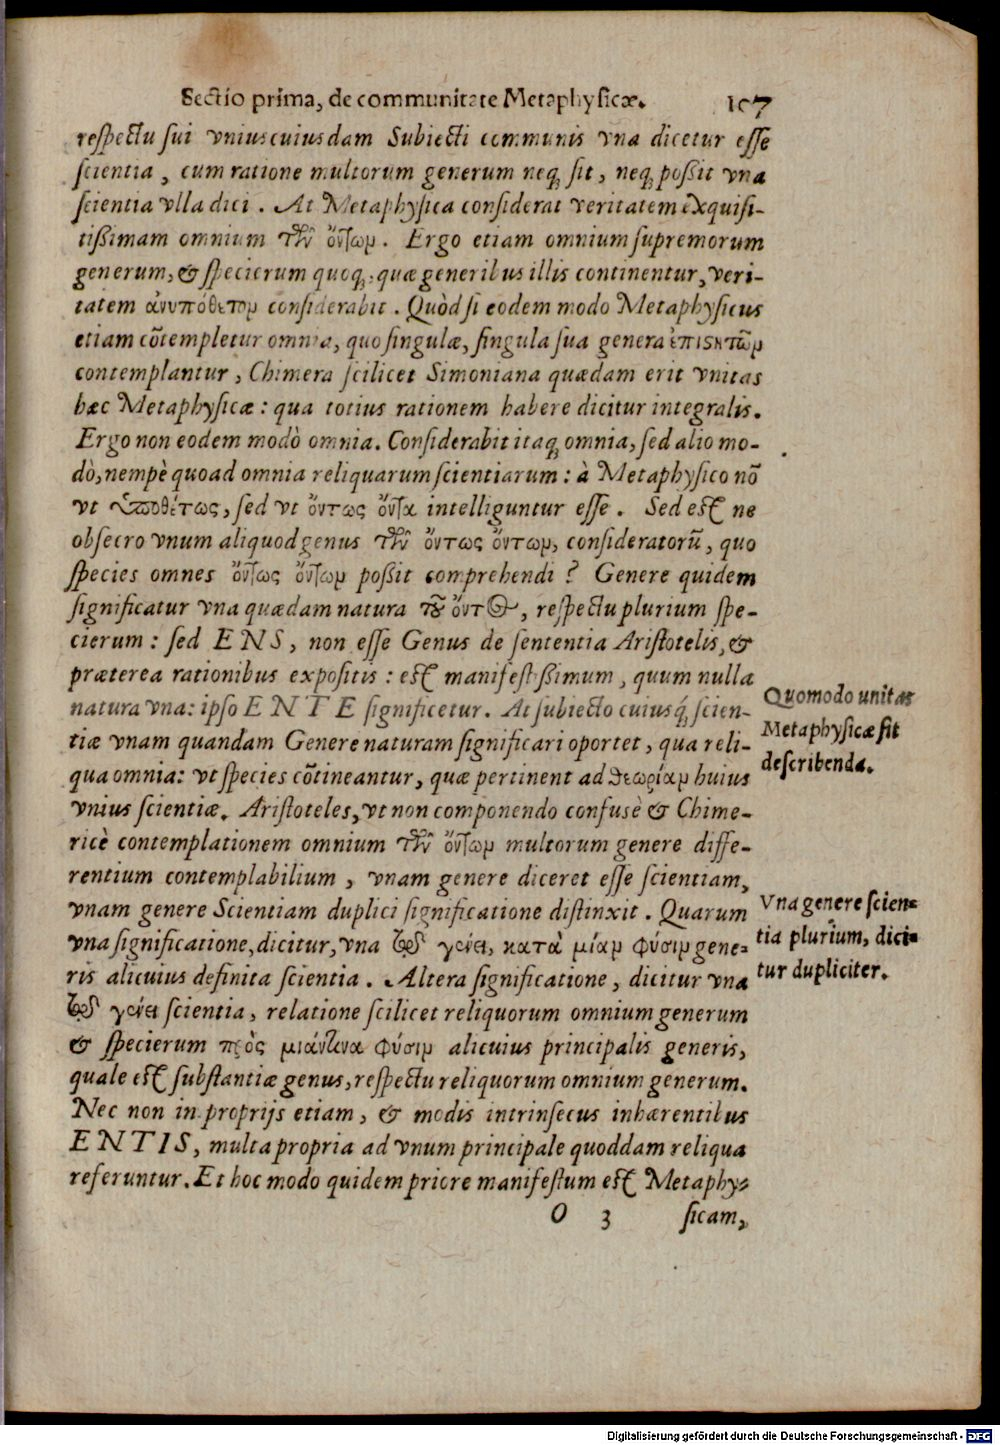 Sectio prima, de communitate Metaphysicæ. 107
respectu sui vniuscuiusdam Subiecti communis vna dicetur esse
scientia, cum ratione multorum generum neq; sit, neq; poßit vna
scientia vlla dici. At Metaphysica considerat veritatem exquisi-
tißimam omnium τῶν ὄντων. Ergo etiam omnium supremorum
generum, & specierum quoq; quæ generibus illis continentur, veri-
tatem ἀνυπόθετον considerabit. Quòd si eodem modo Metaphysicus
etiam cõtempletur omnia, quo singulæ, singula sua genera ἐπιστητῶν
contemplantur, Chimera scilicet Simoniana quædam erit vnitas
hæc Metaphysicæ: qua totius rationem habere dicitur integralis.
Ergo non eodem modò omnia. Considerabit itaq; omnia, sed alio mo-
dò, nempè quoad omnia reliquarum scientiarum: à Metaphysico nõ
vt ὑποθέτως, sed vt ὄντως ὄντα intelliguntur esse. Sed est ne
obsecro vnum aliquod genus τῶν ὄντως ὄντων, consideratorũ, quo
species omnes ὄντως ὄντων poßit comprehendi? Genere quidem
significatur vna quædam natura τοῦ ὄντος, respectu plurium spe-
cierum: sed ENS, non esse Genus de sententia Aristotelis, &
præterea rationibus expositis: est manifestißimum, quum nulla
natura vna: ipso ENTE significetur. At subiecto cuiusq́; scien-
tiæ vnam quandam Genere naturam significari oportet, qua reli-
qua omnia: vt species cõtineantur, quæ pertinent ad θεωρίαν huius
vnius scientiæ. Aristoteles, vt non componendo confusè & Chime-
ricè contemplationem omnium τῶν ὄντων multorum genere diffe-
rentium contemplabilium, vnam genere diceret esse scientiam,
vnam genere Scientiam duplici significatione distinxit. Quarum
vna significatione, dicitur, vna τῷ γένει, κατὰ μίαν φύσιν gene-
ris alicuius definita scientia. Altera significatione, dicitur vna
τῷ γένει scientia, relatione scilicet reliquorum omnium generum
& specierum πρὸς μιάντινα φύσιν alicuius principalis generis,
quale est substantiæ genus, respectu reliquorum omnium generum.
Nec non in proprijs etiam, & modis intrinsecus inhærentibus
ENTIS, multa propria ad vnum principale quoddam reliqua
referuntur. Et hoc modo quidem priore manifestum est Metaphy-
O 3 sicam,
Quomodo unitas
Metaphysicæ sit
describenda.
Vna genere scien-
tia plurium, dici-
tur dupliciter.
Digitalisierung gefördert durch die Deutsche Forschungsgemeinschaft - DFG